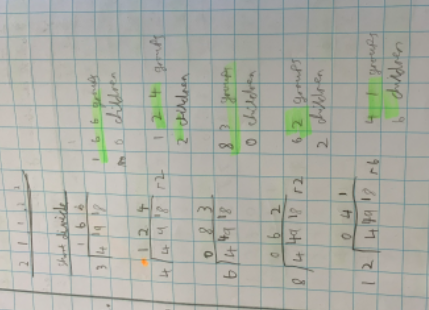 short divide
1 6 6 1 6 6 groups
3 4 19 18 0 children
1 2 4 1 2 4 groups
4 4 9 18 r2 2 children
0 8 3 8 3 groups
6 4 49 18 0 children
0 6 2 6 2 groups
8 4 49 18 r2 2 children
0 4 1 4 1 groups
12 4 49 18 r6 6 children